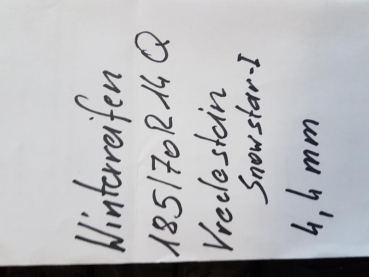 Winterreifen
185/70R14 Q
Vredestein
Snowstar-I
4,4 mm